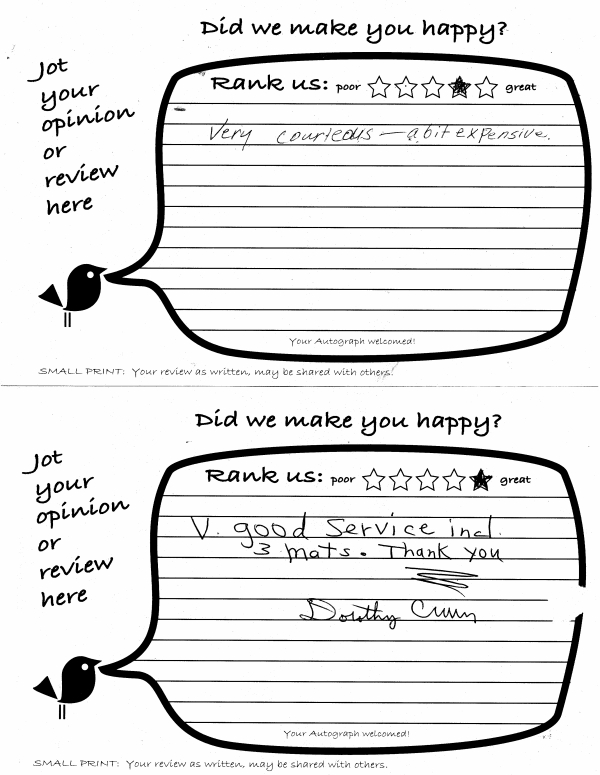 Did we make you happy?
Jot
your
opinion
or
review
here
Rank us: poor great
Very courteous — a bit expensive.
Your Autograph welcomed!
SMALL PRINT: Your review as written, may be shared with others.
Did we make you happy?
Jot
your
opinion
or
review
here
Rank us: poor great
V. good Service incl.
3 mats. Thank you
Dorothy
Your Autograph welcomed!
SMALL PRINT: Your review as written, may be shared with others.